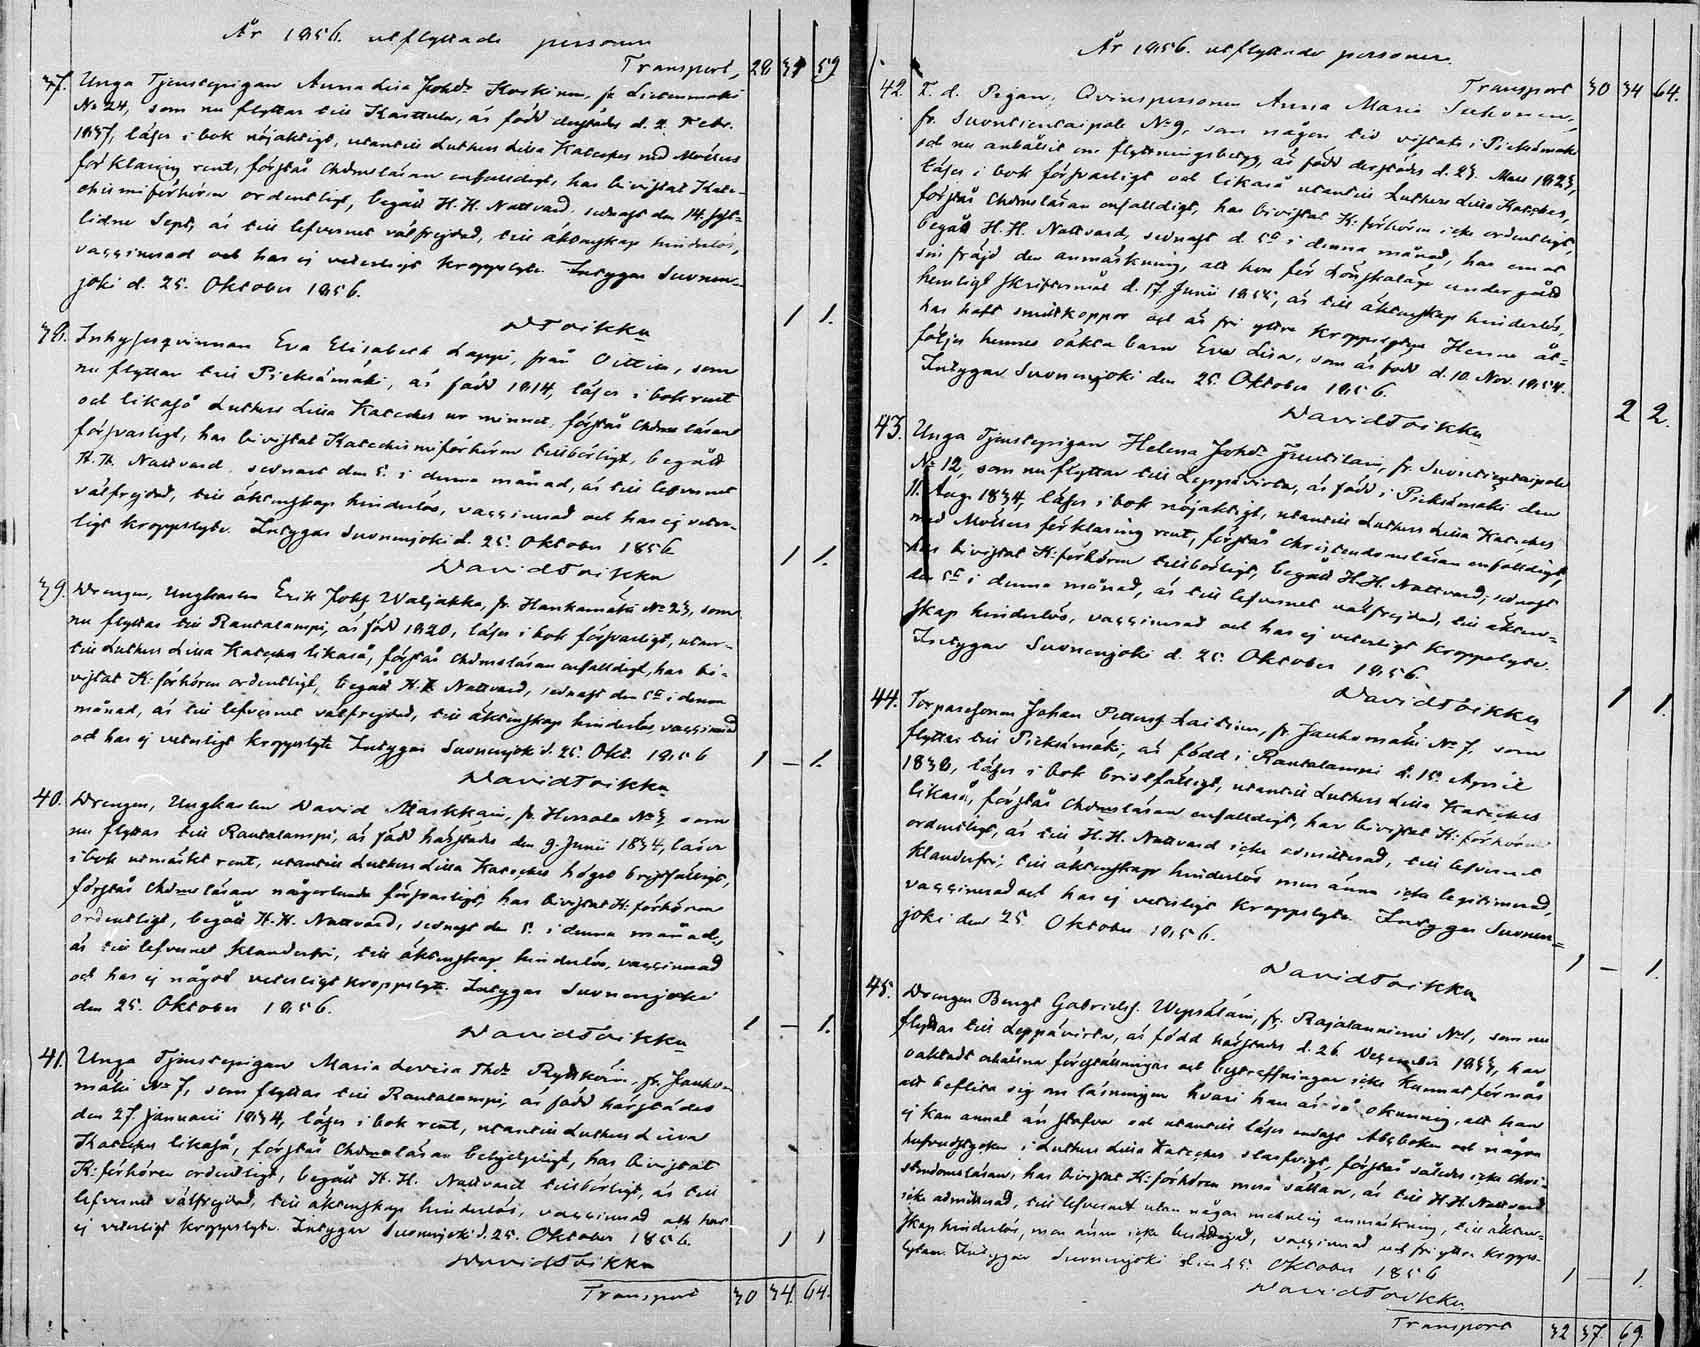 År 1856. utflyttade personer
Transport, 28 31 59
37. Unga Tjenstepigan Anna Lisa Johdr Koskinen, fr. Lietenmäki
No 24, som nu flyttar till Karttula, är född derstädes d. 2. Febr.
1837, läser i bok nöjaktigt, utantill Luthers Lilla Kateches med Mörters
förklaring rent, förstår Chrmsläran enfalldigt, har bivistat Kate-
chismiförhören ordentligt, begått H. H. Nattvard, sednast den 14. sist-
lidne Sept, är till lefvernet välfrejdad, till äktenskap hinderlös,
vaccinerad och har ej veterligt kroppslyte. Intygar Suonen-
joki d. 25. Oktober 1856.
DToikka 1 1.
38. Inhysesqvinnan Eva Elisabeth Lappi, från Oittila, som
nu flyttar till Pieksämäki, är född 1814, läser i bok rent
och likaså Luthers Lilla Kateches ur minnet, förstår Chrmsläran
försvarligt, har bivistat Katechismiförhören tillbörligt, begått
H. H. Nattvard, sednast den 5. i denna månad, är till lefvernet
välfrejdad, till äktenskap hinderlös, vaccinerad och har ej veter-
ligt kroppslyte. Intygar Suonenjoki d. 25. Oktober 1856
David Toikka 1 1.
39. Drengen, Ungkarlen Erik Johss Waljakka, fr. Hankamäki No 23, som
nu flyttar till Rautalampi, är född 1820, läser i bok försvarligt, utan-
till Luthers Lilla Kateches likaså, förstår Chrmsläran enfalldigt, har bi-
vistat K: förhören ordentligt, begått H. H. Nattvard, sednast den 5te i denna
månad, är till lefvernet välfrejdad, till äktenskap hinderlös, vaccinerad
och har ej veterligt kroppslyte Intygar Suonenjoki d. 25. Okt. 1856 1 – 1.
David Toikka
40. Drengen, Ungkarlen David Markkain, fr. Herrala No 3, som
nu flyttar till Rautalampi, är född härstädes den 9. Junii 1834, läser
i bok utmärkt rent, utantill Luthers Lilla Kateches högst bristfälligt,
förstår Chrmsläran någorlunda försvarligt, har bivistat K: förhören
ordentligt, begått H. H. Nattvard, sednast den 5. i denna månad,
är till lefvernet klanderfri, till äktenskap hinderlös, vaccinerad
och har ej något veterligt kroppslyte. Intygar Suonenjoki
den 25. Oktober 1856.
David Toikka 1 – 1.
41. Unga Tjenstepigan Maria Lovisa Thdr Rytköin, fr. Jauho-
mäki No 7, som flyttar till Rautalampi, är född härstädes
den 27. Januarii 1834, läser i bok rent, utantill Luthers Lilla
Kateches likaså, förstår Chrmsläran behjelpligt, har bivistat
K: förhören ordentligt, begått H. H. Nattvard tillbörligt, är till
lefvernet välfrejdad, till äktenskap hinderlös, vaccinerad och har
ej veterligt kroppslyte. Intygar Suonenjoki d. 25. Oktober 1856. 1 1
David Toikka
Transport 30 34. 64.
År 1856. utflyttade personer.
Transport 30 34 64.
42. F. d. Pigan, Qvinspersonen Anna Maria Suhonen,
fr. Suontientaipale No 9, som någon tid vistats i Pieksämäki
och nu anhållit om flyttningsbetyg, är född derstädes d. 23. Mars 1823,
läser i bok försvarligt och likaså utantill Luthers Lilla Kateches,
förstår Chrmsläran enfalldigt, har bivistat K: förhören icke ordentligt,
begått H. H. Nattvard, sednast d. 5te i denna månad, har emot
sin fräjd den anmärkning, att hon för Lönskaläge undergått
hemligt skriftermål d. 17. Junii 1855, är till äktenskap hinderlös,
har haft smittkoppor och är fri yttre kroppslyten Henne åt-
följer hennes oäkta barn Eva Lisa, som är född d. 10. Nov. 1854.
Intygar Suonenjoki den 25. Oktober 1856.
David Toikka 2 2.
43. Unga Tjenstepigan Helena Johdr Juutilain, fr. Suontientaipale
No 12, som nu flyttar till Leppävirta, är född i Pieksämäki den
11. Aug. 1834, läser i bok nöjaktigt, utantill Luthers Lilla Kateches
med Mörters förklaring rent, förstår christendomsläran enfalldigt,
har bivistat K: förhören tillbörligt, begått H. H. Nattvard, sednast
den 5te i denna månad, är till lefvernet välfrejdad, till äkten-
skap hinderlös, vaccinerad och har ej veterligt kroppslyte.
Intygar Suonenjoki d. 25. Oktober 1856.
David Toikka 1 1.
44. Torparesonen Johan Petterss Laitinen, fr. Jauhomäki No 7, som
flyttar till Pieksämäki, är född i Rautalampi d. 15. April
1838, läser i bok bristfälligt, utantill Luthers Lilla Kateches
likaså, förstår Chrmsläran enfalldigt, har bivistat K: förhören
ordentligt, är till H. H. Nattvard icke admitterad, till lefvernet
klanderfri, till äktenskap hinderlös men ännu icke legitimerad,
vaccinerad och har ej veterligt kroppslyte. Intygar Suonen-
joki den 25. Oktober 1856.
David Toikka 1 – 1.
45. Drengen Bengt Gabrielss. Wepsäläin, fr. Rajalanniemi No 1, som nu
flyttar till Leppävirta, är född härstädes d. 26. December 1833, har
oaktadt erhållna föreställningar och bestraffningar icke kunnat förmås
att beflita sig om läsningen hvari han är så okunnig, att han
ej kan annat än stafva och utantill läser endast Abcboken och någon
hufvudstycken i Luthers Lilla Kateches slarfvigt, förstår således icke Chri-
stendomsläran, har bivistat K: förhören mera sällan, är till H. H. Nattvard
icke admitterad, till lefvernet utan någon menlig anmärkning, till äkten-
skap hinderlös, men ännu icke berättigad, vaccinerad och fri yttre kropps-
lyten. Intygar Suonenjoki den 25. Oktober 1856 1 – 1.
David Toikka.
Transport 32 37. 69.